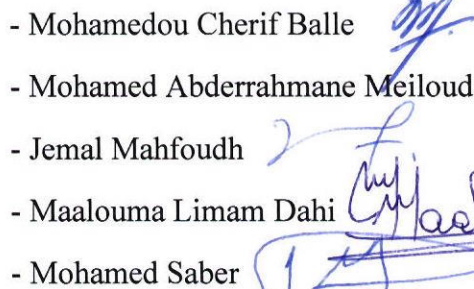 - Mohamedou Cherif Balle
- Mohamed Abderrahmane Meiloud
- Jemal Mahfoudh
- Maalouma Limam Dahi
- Mohamed Saber